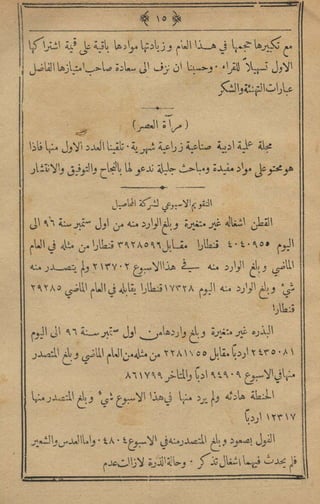 ﴿ ١٥ ﴾
مع تكبيرها حجمها في هذا العام وزيادتها موادها باقية على قيمة اشتراكها
الاول تسهيلاً للقراء ٠ وحسبنا ان نزف الى سعادة صاحب امتيازها الفاضل
عبارات التهنئة والشكر
( مرآة العصر )
مجلة علمية ادبية صناعية زراعية شهرية ٠ تلقينا العدد الاول منها فاذا
هو محتو على مواد مفيدة ومباحث جليلة ندعو لها بالنجاح والتوفيق والانتشار
التقويم الاسبوعي لشركة المحاصيل
القطن اشغاله غير متغيرة وبلغ الوارد منه من اول ستمبر سنة ٩٦ الى
اليوم ٤٠٤٠٩٥٥ قنطارا مقابل ٣٩٢٨٥٩٦ قنطارا من مثله في العام
الماضي وبلغ الوارد منه في هذا الاسبوع ٢١٣٧٠٢ ولم يتصدر منه
شيء وبلغ الوارد منه اليوم ١٧٣٢٨ قنطارا يقابله في العام الماضي ٢٩٢٨٥
قنطارا
البذره غير متغيرة وبلغ واردها من اول ستمبر سنة ٩٦ الى اليوم
٢٤٣٥٠٨١ اردبا مقابل ٢٢٨١١٥٥ من مثله من العام الماضي وبلغ المتصدر
منها في الاسبوع ٩٤٩٠٩ اردبا والمتاخر ٨٦١٧٩٩
الحنطة هادئه ولم يرد منها في هذا الاسبوع شيء وبلغ المتصدر منها
١٢٣١٧ اردبا
الفول بصعود وبلغ المتصدر منه في الاسبوع ٤٨٠٤ ٠ واما العدس والشعير
فلم يحدث فيهما اشغال تذكر ٠ وحالة الذرة لازالت عدم